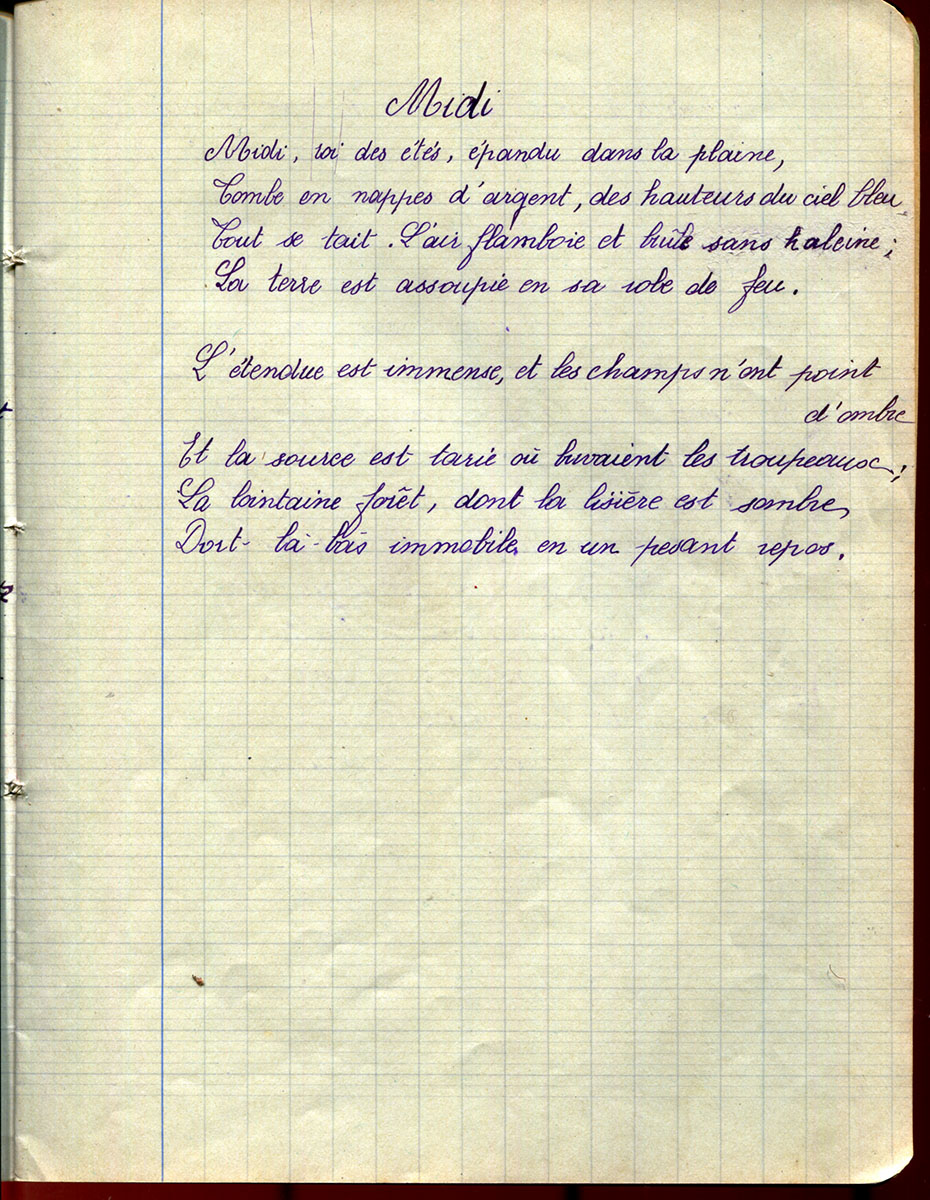 Midi
Midi, roi des étés, épandu dans la plaine,
Tombe en nappes d'argent, des hauteurs du ciel bleu.
Tout se tait. L'air flamboie et brûle sans haleine;
La terre est assoupie en sa robe de feu.
L'étendue est immense, et les champs n'ont point
d'ombre
Et la source est tarie où buvaient les troupeaux;
La lointaine forêt, dont la lisière est sombre,
Dort là-bas immobile, en un pesant repos.